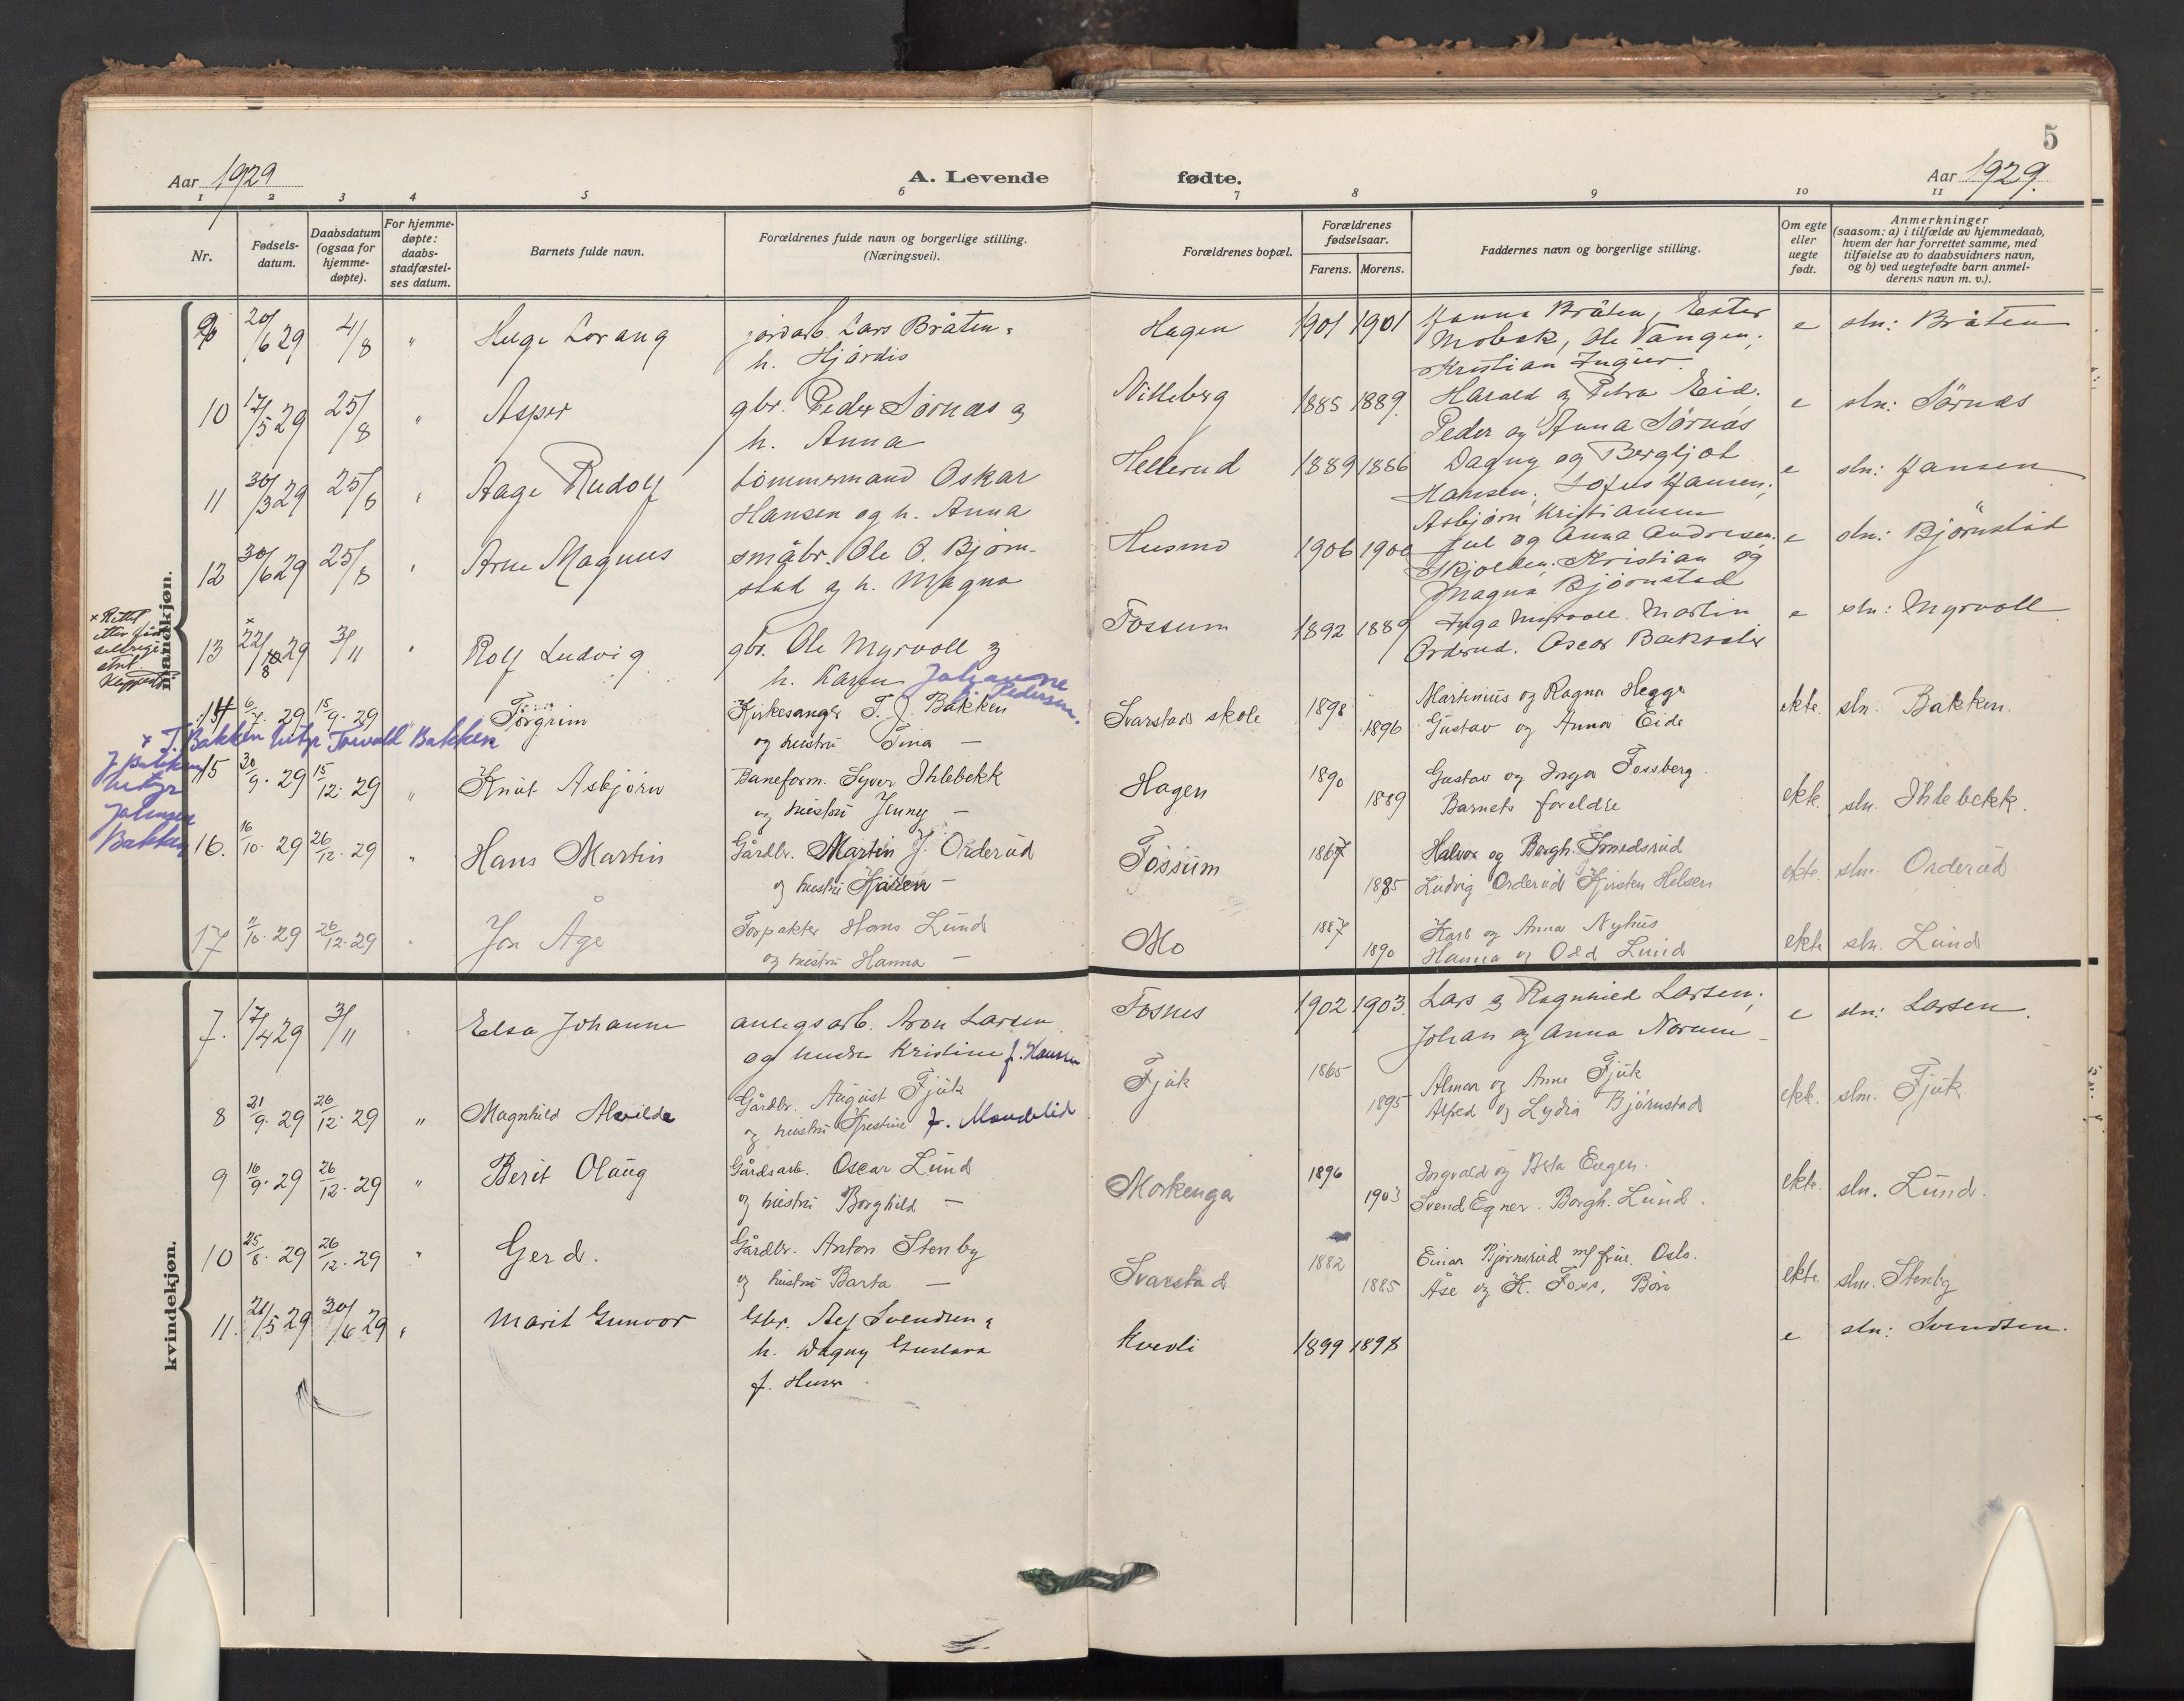 5
Aar 1929
A. Levende
fødte.
Aar 1929.
1 2 3 4 5 6 7 8 9 10 11
Nr.
Fødsels-
datum.
Daabsdatum
(ogsaa for
hjemme-
døpte).
For hjemme-
døpte:
daabs-
stadfæstel-
ses datum.
Barnets fulde navn.
Forældrenes fulde navn og borgerlige stilling.
(Næringsvei).
Forældrenes bopæl.
Forældrenes
fødselsaar.
Farens. Morens.
Faddernes navn og borgerlige stilling.
Om egte
eller
uegte
født.
Anmerkninger
(saasom: a) i tilfælde av hjemmedaab,
hvem der har forrettet samme, med
tilføielse av to daabsvidners navn,
og b) ved uegtefødte barn anmel-
derens navn m. v.).
mandkjøn.
9 20/6 29 4/8 " Helge Lorang jordarb. Lars Bråten Hagen 1901 1901 Hanna Bråten, Ester e stn: Bråten
h. Hjördis Mobæk, Ole Vangen,
Kristian
10 17/5 29 25/8 " Asper gbr. Peder Sørnæs og Nilleberg 1885 1889 Harald og Petra Eid. e stn: Sørnæs
h. Anna Peder og Anna Sørnæs
11 30/3 29 25/8 " Aage Rudolf tømmermand Oskar Hellerud 1889 1886 Dagny og Bergljot e stn: Hansen
Hansen og h. Anna Hansen, Sofus Hansen,
Asbjørn Kristiansen
12 30/6 29 25/8 " Arne Magnus småbr. Ole O. Bjørn- Husmo 1906 1900 Jul og Anna Andresen. e stn: Bjørnstad
stad og h. Magna Kristian og
Magna Bjørnstad
13 x 22/8 29 3/11 " Rolf Ludvig gbr. Ole Myrvoll og Fossum 1892 1889 Inga Myrvoll. Martin e stn: Myrvoll
h. Karen Johanne Pedersen. Orderud. Oscar
x Rettet
etter
14 6/7. 29 15/9. 29 Torgrim Kirkesanger T. J. Bakken Svarstad skole 1898 1896 Martinius og Ragna Hegge ekte. stn. Bakken.
og hustru Tina — Gustav og Anna Eide
x T. Bakken betyr Torvald Bakken
J Bakken
betyr
Johansen
Bakken
15 30/9. 29 15/12. 29 " Knut Asbjørn Baneform. Syver Ihlebekk Hagen 1890 1889 Gustav og Inga Fossberg. ekte. stn. Ihlebekk.
og hustru Jenny — Barnets foreldre
16. 16/10. 29 26/12. 29 " Hans Martin Gårdbr. Martin J. Orderud Fossum 1867 1885 Halvor og Borgh. Smedsrud ekte. stn. Orderud
og hustru Karen — Ludvig Orderud Kirsten Helsen
17 11/10. 29 26/12. 29 " Jon Åge Forpakter Hans Lund Mo 1887 1890 Karl og Anna Nyhus ekte stn. Lund
og hustru Hanna — Hanna og Odd Lund
kvindekjøn.
7. 17/4 29 3/11 " Elsa Johanne anlegsarb. Aron Larsen Fosnes 1902 1903. Lars og Ragnhild Larsen, e stn: Larsen.
og hustru Kristine f. Hansen Johan og Anna Norum
8 21/9. 29 26/12. 29 " Magnhild Alvilde Gårdbr. August Fjuk Fjuk 1865 1895 Almar og Anne Fjuk ekte. stn. Fjuk
og hustru Kristine f. Mandelid Alfred og Lydia Bjørnstad
9 16/9. 29 26/12. 29 " Berit Olaug Gårdsarb. Oscar Lund Morkenga 1896 1903 Ingvald og Asta Engen. ekte. stn. Lund.
og hustru Borghild — Svend Egner. Borgh. Lund.
10 25/8. 29 26/12. 29 " Gerd. Gårdbr. Anton Stenby Svarstad 1882 1885 Einar Bjørnsrud m/ frue. Oslo. ekte. stn. Stenby
og hustru Barta — Åse og K. Foss, Boro
11. 21/5 29 30/6 29 " Marit Gunvor Gbr. Alf Svendsen Kverli 1899 1898 e stn: Svendsen.
h. Dagny Gustava
f.